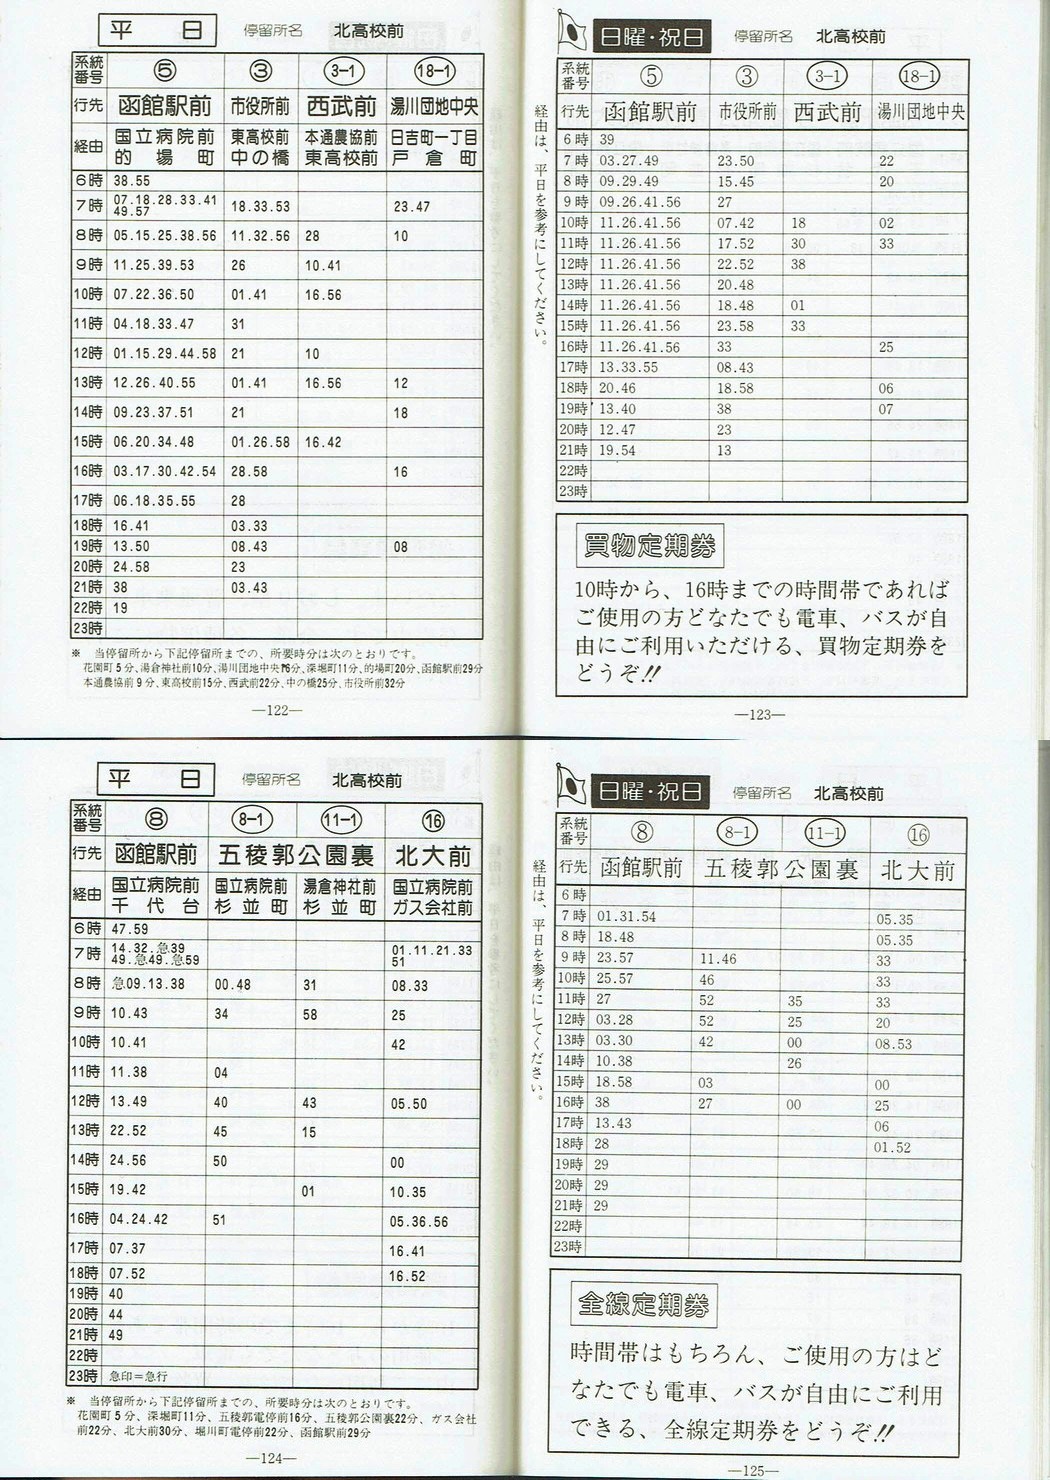 平 日 停留所名 北高校前
系統番号 ⑤ ③ 3-1 18-1
行先 函館駅前 市役所前 西武前 湯川団地中央
経由 国立病院前 的場町 東高校前 中の橋 本通農協前 東高校前 日吉町一丁目 戸倉町
6時 38.55
7時 07.18.28.33.41 49.57 18.33.53 23.47
8時 05.15.25.38.56 11.32.56 28 10
9時 11.25.39.53 26 10.41
10時 07.22.36.50 01.41 16.56
11時 04.18.33.47 31
12時 01.15.29.44.58 21 10
13時 12.26.40.55 01.41 16.56 12
14時 09.23.37.51 21 18
15時 06.20.34.48 01.26.58 16.42
16時 03.17.30.42.54 28.58 16
17時 06.18.35.55 28
18時 16.41 03.33
19時 13.50 08.43 08
20時 24.58 23
21時 38 03.43
22時 19
23時
※ 当停留所から下記停留所までの、所要時分は次のとおりです。
花園町5分、湯倉神社前10分、湯川団地中央16分、深堀町11分、的場町20分、函館駅前29分
本通農協前9分、東高校前15分、西武前22分、中の橋25分、市役所前32分
—122—
日曜・祝日 停留所名 北高校前
経由は、平日を参考にしてください。
系統番号 ⑤ ③ 3-1 18-1
行先 函館駅前 市役所前 西武前 湯川団地中央
6時 39
7時 03.27.49 23.50 22
8時 09.29.49 15.45 20
9時 09.26.41.56 27
10時 11.26.41.56 07.42 18 02
11時 11.26.41.56 17.52 30 33
12時 11.26.41.56 22.52 38
13時 11.26.41.56 20.48
14時 11.26.41.56 18.48 01
15時 11.26.41.56 23.58 33
16時 11.26.41.56 33 25
17時 13.33.55 08.43
18時 20.46 18.58 06
19時 13.40 38 07
20時 12.47 23
21時 19.54 13
22時
23時
買物定期券
10時から、16時までの時間帯であれば
ご使用の方どなたでも電車、バスが自
由にご利用いただける、買物定期券を
どうぞ!!
—123—
平 日 停留所名 北高校前
系統番号 ⑧ 8-1 11-1 ⑯
行先 函館駅前 五稜郭公園裏 北大前
経由 国立病院前 千代台 国立病院前 杉並町 湯倉神社前 杉並町 国立病院前 ガス会社前
6時 47.59
7時 14.32.急39 49.急49.急59 01.11.21.33 51
8時 急09.13.38 00.48 31 08.33
9時 10.43 34 58 25
10時 10.41 42
11時 11.38 04
12時 13.49 40 43 05.50
13時 22.52 45 15
14時 24.56 50 00
15時 19.42 01 10.35
16時 04.24.42 51 05.36.56
17時 07.37 16.41
18時 07.52 16.52
19時 40
20時 44
21時 49
22時
23時 急印=急行
※ 当停留所から下記停留所までの、所要時分は次のとおりです。
花園町5分、深堀町11分、五稜郭電停前16分、五稜郭公園裏22分、ガス会社
前22分、北大前30分、堀川町電停前22分、函館駅前29分
—124—
日曜・祝日 停留所名 北高校前
経由は、平日を参考にしてください。
系統番号 ⑧ 8-1 11-1 ⑯
行先 函館駅前 五稜郭公園裏 北大前
6時
7時 01.31.54 05.35
8時 18.48 05.35
9時 23.57 11.46 33
10時 25.57 46 33
11時 27 52 35 33
12時 03.28 52 25 20
13時 03.30 42 00 08.53
14時 10.38 26
15時 18.58 03 00
16時 38 27 00 25
17時 13.43 06
18時 28 01.52
19時 29
20時 29
21時 29
22時
23時
全線定期券
時間帯はもちろん、ご使用の方はど
なたでも電車、バスが自由にご利用
できる、全線定期券をどうぞ!!
—125—